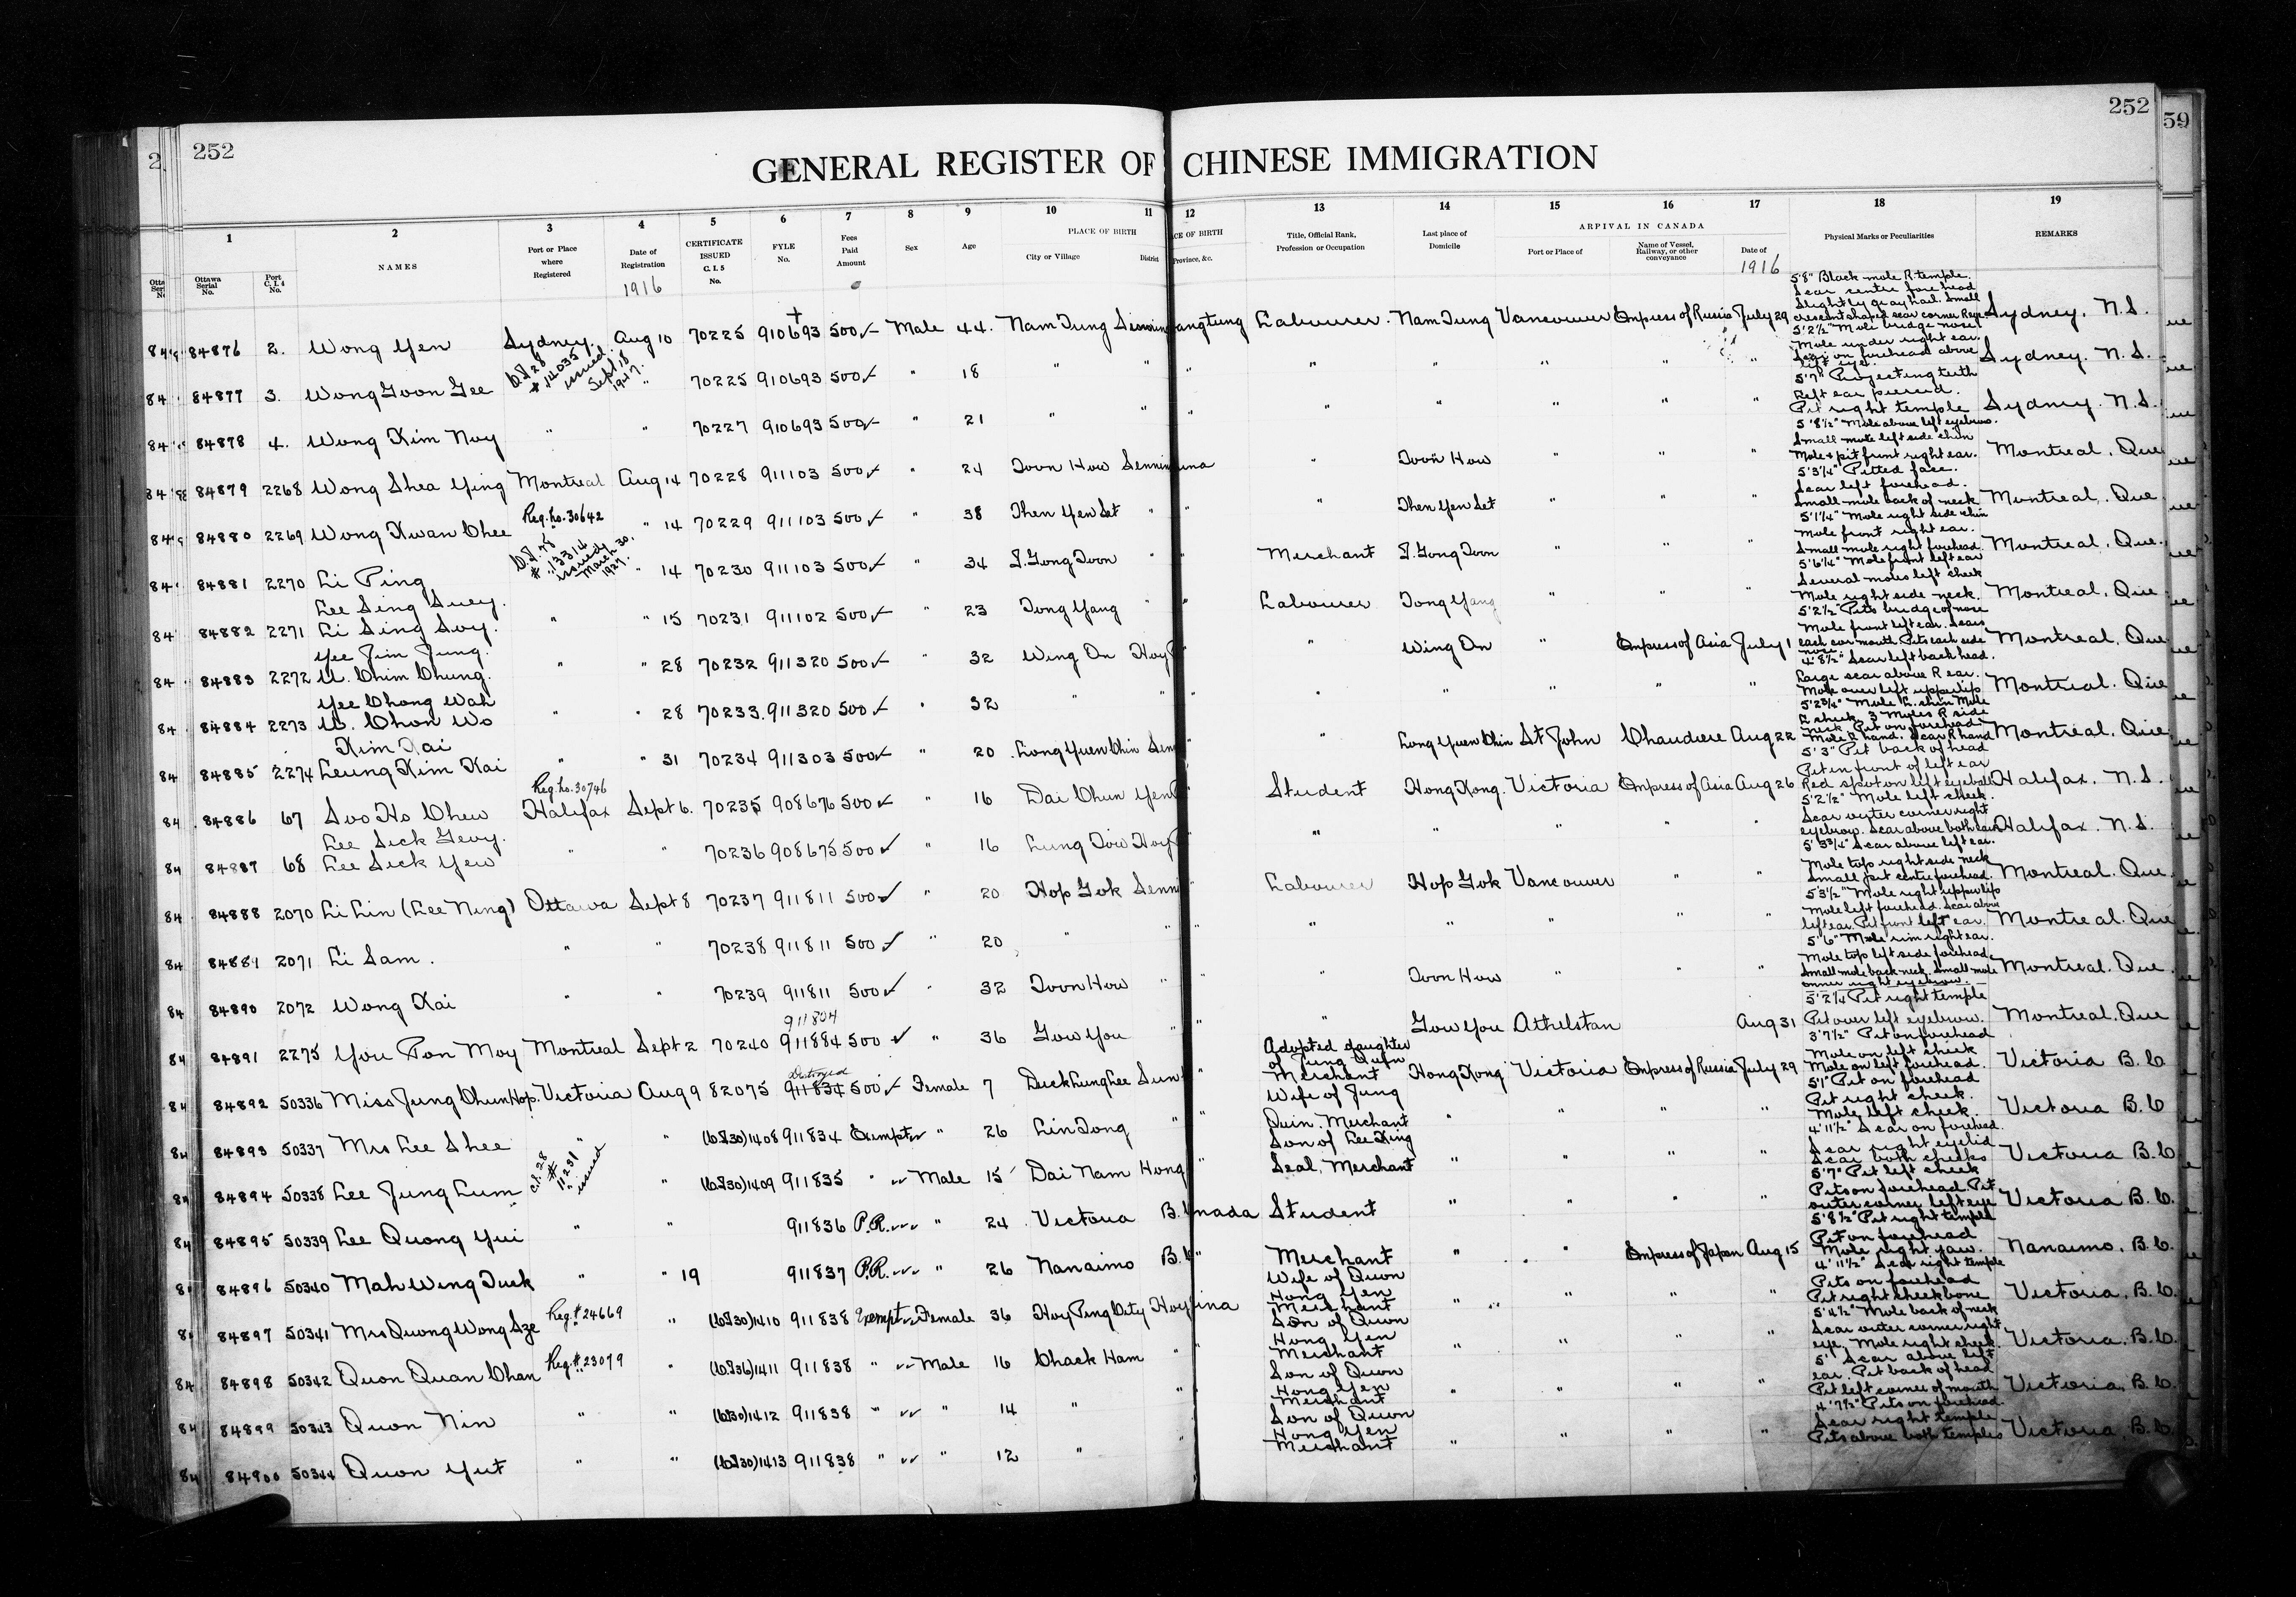 252
252
59
GENERAL REGISTER OF CHINESE IMMIGRATION
1 2 3 4 5 6 7 8 9 10 11 12 13 14 15 16 17 18 19
Ottawa Serial No. Port C.I.4 No. NAMES Port or Place where Registered Date of Registration CERTIFICATE ISSUED C.I.5 No. FYLE No. Fees Paid Amount Sex Age PLACE OF BIRTH City or Village District Province, &c. Title, Official Rank, Profession or Occupation Last place of Domicile ARRIVAL IN CANADA Port or Place of Name of Vessel, Railway, or other conveyance Date of Physical Marks or Peculiarities REMARKS
1916 1916
84876 2. Wong Yen Sydney. Aug 10 70225 910693 500 ✓ Male 44. Nam Tung Labourer. Nam Tung Vancouver Empress of Russia July 29 5'8" Black mole R. temple. Scar centre forehead Slightly gray hair. Small crescent shaped scar corner R eye Sydney. N.S.
84877 3. Wong Goon Gee C.I.28 # 14035 issued Sept. 18 1947. " 70225 910693 500 ✓ " 18 " " " " " " " " 5'2½" Mole bridge nose Mole under right ear. Scar on forehead above left eye. Sydney. N.S.
84878 4. Wong Kim Noy " " 70227 910693 500 ✓ " 21 " " " " " " " " 5'7" Projecting teeth Left ear pierced. Pit right temple Sydney. N.S.
84879 2268 Wong Shea Ying Montreal Aug 14 70228 911103 500 ✓ " 24 Toon How " Toon How " " " 5'8½" Mole above left eyebrow. Small mole left side chin Mole & pit front right ear. Montreal, Que
84880 2269 Wong Kwan Chee Reg. No. 30642 " 14 70229 911103 500 ✓ " 38 Then Yen Set " " " Then Yen Set " " " 5'3¼" Pitted face. Scar left forehead. Small mole back of neck Montreal, Que
84881 2270 Li Ping C.I.28 # 13314 issued March 30. 1927. " 14 70230 911103 500 ✓ " 34 S. Gong Toon " " Merchant S. Gong Toon " " " 5'1¼" Mole right side chin Mole front right ear. Small mole right forehead. Montreal, Que.
Lee Sing Suey.
84882 2271 Li Sing Soy. " " 15 70231 911102 500 ✓ " 23 Tong Yang " " Labourer Tong Yang " " " 5'6¼" Mole front left ear Several moles left cheek Mole right side neck. Montreal, Que
Yee Jim Jung.
84883 2272 U. Chim Chung. " " 28 70232 911320 500 ✓ " 32 Wing On Hoy " Wing On " Empress of Asia July 1 5'2½" Pits bridge of nose Mole front left ear. Scars each cor. mouth. Pits each side nose Montreal, Que
Yee Chong Wah
84884 2273 U. Chon Wo " " 28 70233. 911320 500 ✓ " 32 " " " " " " " " 4'8½" Scar left back head. Large scar above R ear. Mole over left upper lip Montreal. Que
Kim Kai
84885 2274 Leung Kim Kai " " 31 70234 911303 500 ✓ " 20 Long Yuen Chin " Long Yuen Chin St John Chaudiere Aug 22 Montreal. Que
84886 67 Soo Ho Chew Reg. No. 30746 Halifax Sept 6. 70235 908676 500 ✓ " 16 Dai Chun Student Hong Kong. Victoria Empress of Asia Aug 26 5'3" Pit back of head Pit in front of left ear Red spot on left eyeball Halifax. N.S.
Lee Sick Gevy.
84887 68 Lee Sick Yew " " 70236 908675 500 ✓ " 16 Lung Tow Hoy " " " " " 5'2½" Mole left cheek. Scar outer corner right eyebrow. Scar above both ears Halifax. N.S.
84888 2070 Li Lin (Lee Ning) Ottawa Sept 8 70237 911811 500 ✓ " 20 Hop Gok Labourer Hop Gok Vancouver " " 5'3¾" Scar above left ear. Mole top right side neck Small pit centre forehead. Montreal. Que
84889 2071 Li Sam. " " 70238 911811 500 ✓ " 20 " " " " " " " " 5'3½" Mole right upper lip Mole left forehead. Scar above left ear. Pit front left ear. Montreal. Que
84890 2072 Wong Kai " " 70239 911811 500 ✓ " 32 Toon How " " " Toon How " " " 5'6" Mole rim right ear. Mole top left side forehead. Small mole back neck. Small mole inner right eyebrow. Montreal. Que
911804
84891 2275 You Pon Moy Montreal Sept 2 70240 911884 500 ✓ " 36 Gow You " " " Gow You Athelstan Aug 31 5'2¼ Pit right temple Pit over left eyebrow. Montreal. Que
84892 50336 Miss Jung Chun Hop. Victoria Aug 9 82075 Destroyed 911834 500 ✓ Female 7 Duck Lung Lee Sun Adopted daughter of Jung Quin Merchant Hong Kong Victoria Empress of Russia July 29 3'7½" Pit on forehead Mole on left cheek Mole on left forehead. Victoria B.C
84893 50337 Mrs Lee Shee " " (C.I.30) 1408 911834 Exempt ✓ " 26 Lin Tong " " Wife of Jung Quin. Merchant " " " " 5'1" Pit on forehead Pit right cheek. Mole left cheek. Victoria B.C
84894 50338 Lee Jung Lum C.I.28 # 11231 issued " (C.I.30) 1409 911835 " ✓✓ Male 15 Dai Nam Hong " Son of Lee King Seal, Merchant " " " " 4'11½" Scar on forehead. Scar right eyelid Scar both cheeks Victoria B.C
84895 50339 Lee Quong Yui " " 911836 P.R. ✓✓ " 24 Victoria B.C Canada Student " " " " 5'7" Pit left cheek Pits on forehead. Pit outer corner left eye Victoria B.C.
84896 50340 Mah Wing Tuck " " 19 911837 P.R. ✓✓ " 26 Nanaimo B.C " Merchant " " Empress of Japan Aug 15 5'8½" Pit right temple Pit on forehead Mole right jaw. Nanaimo, B.C.
84897 50341 Mrs Quong Wong Sze Reg. # 24669 " (C.I.30) 1410 911838 Exempt ✓✓ Female 36 Hoy Ping City Hoy Wife of Quon Hong Yen Merchant " " " " 4'11½" Scar right temple Pits on forehead Pit right cheek bone Victoria, B.C.
84898 50342 Quon Quan Chan Reg. # 23079 " (C.I.36) 1411 911838 " ✓✓ Male 16 Chack Ham " " Son of Quon Hong Yen Merchant " " " " 5'4½" Mole back of neck Scar outer corner right eye. Mole right cheek Victoria. B.C.
84899 50343 Quon Nin " " (C.I.30) 1412 911838 " ✓✓ " 14 " " Son of Quon Hong Yen Merchant " " " " 5' Scar above left ear. Pit back of head Pit left corner of mouth Victoria, B.C.
84900 50344 Quon Yut " " (C.I.30) 1413 911838 " ✓✓ " 12 " " Son of Quon Hong Yen Merchant " " " " 4'7½" Pits on forehead. Scar right temple Pits above both temples Victoria, B.C.